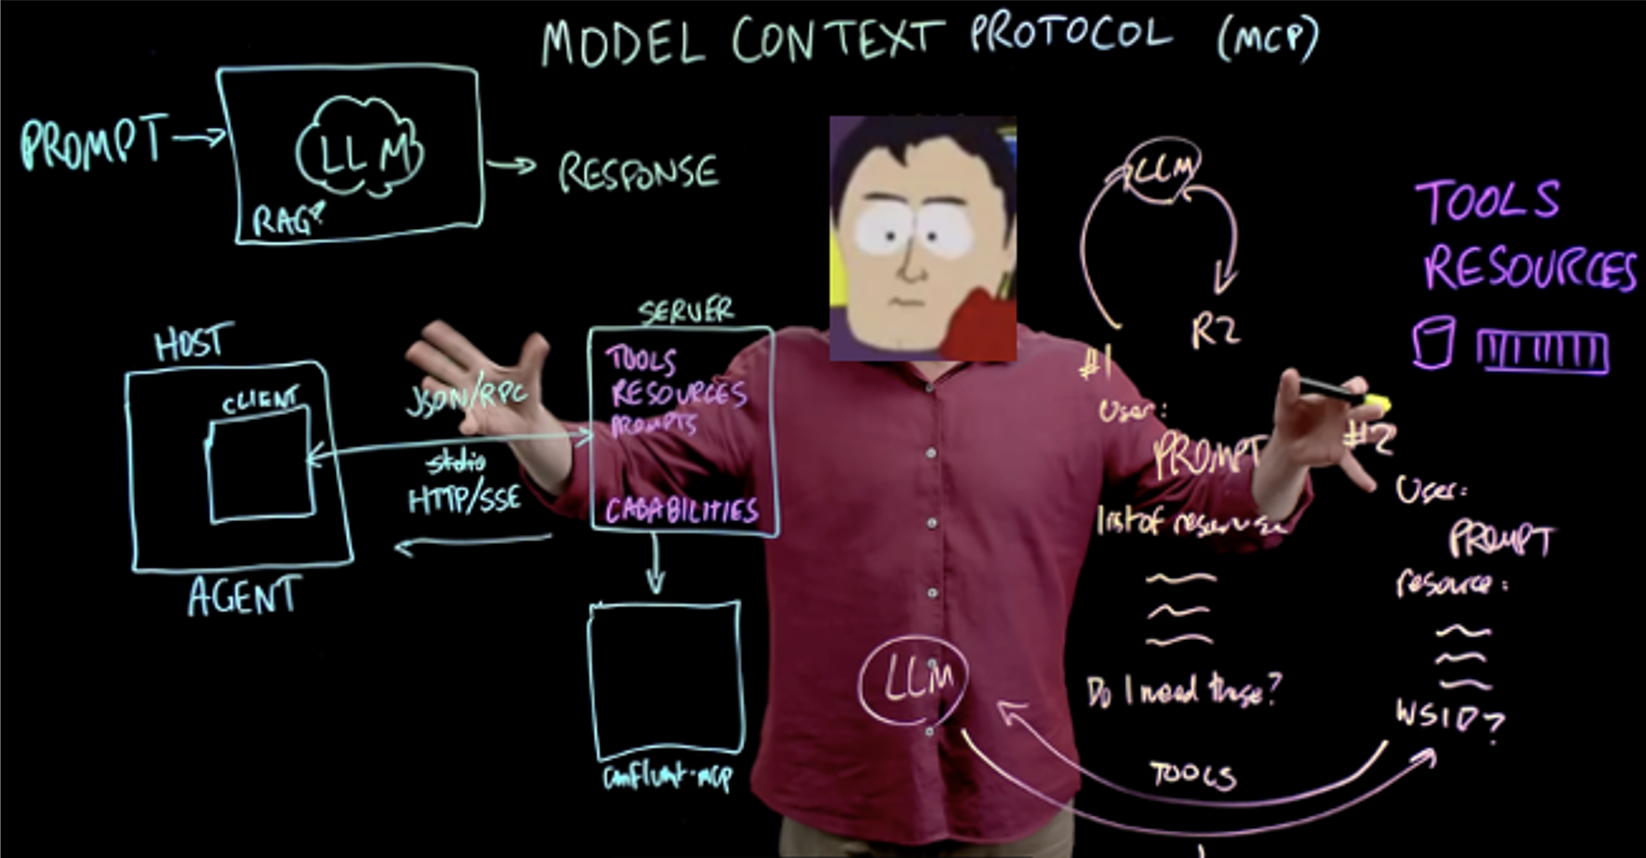 MODEL CONTEXT PROTOCOL (MCP)
PROMPT
LLM
RAG?
RESPONSE
HOST
CLIENT
AGENT
JSON/RPC
stdio
HTTP/SSE
SERVER
TOOLS
RESOURCES
PROMPTS
CAPABILITIES
confluent-mcp
LLM
R2
#1
User:
PROMPT
list of resources
Do I need these?
LLM
TOOLS
TOOLS
RESOURCES
#2
User:
PROMPT
resource:
WSID?